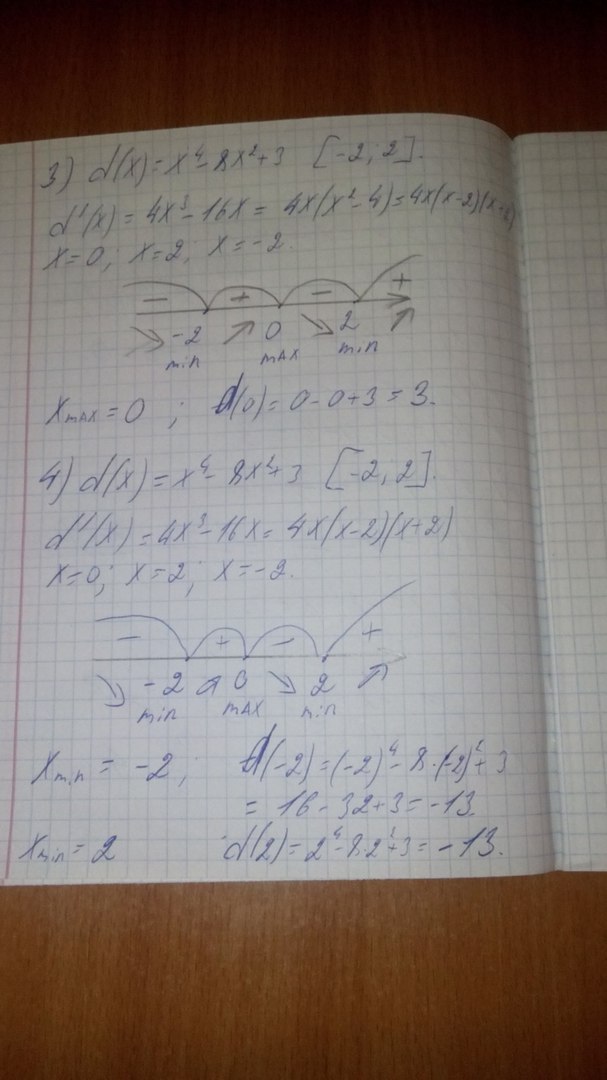 3) d(x) = x⁴ - 8x² + 3 [-2; 2].
d'(x) = 4x³ - 16x = 4x(x² - 4) = 4x(x-2)(x+2)
x=0; x=2; x=-2.
- + - +
↘ -2 ↗ 0 ↘ 2 ↗
min max min
x max = 0 ; d(0) = 0 - 0 + 3 = 3.
4) d(x) = x⁴ - 8x² + 3 [-2; 2].
d'(x) = 4x³ - 16x = 4x(x-2)(x+2)
x=0; x=2; x=-2.
- + - +
↘ -2 ↗ 0 ↘ 2 ↗
min max min
x min = -2; d(-2) = (-2)⁴ - 8·(-2)² + 3
= 16 - 32 + 3 = -13.
x min = 2 d(2) = 2⁴ - 8·2² + 3 = -13.